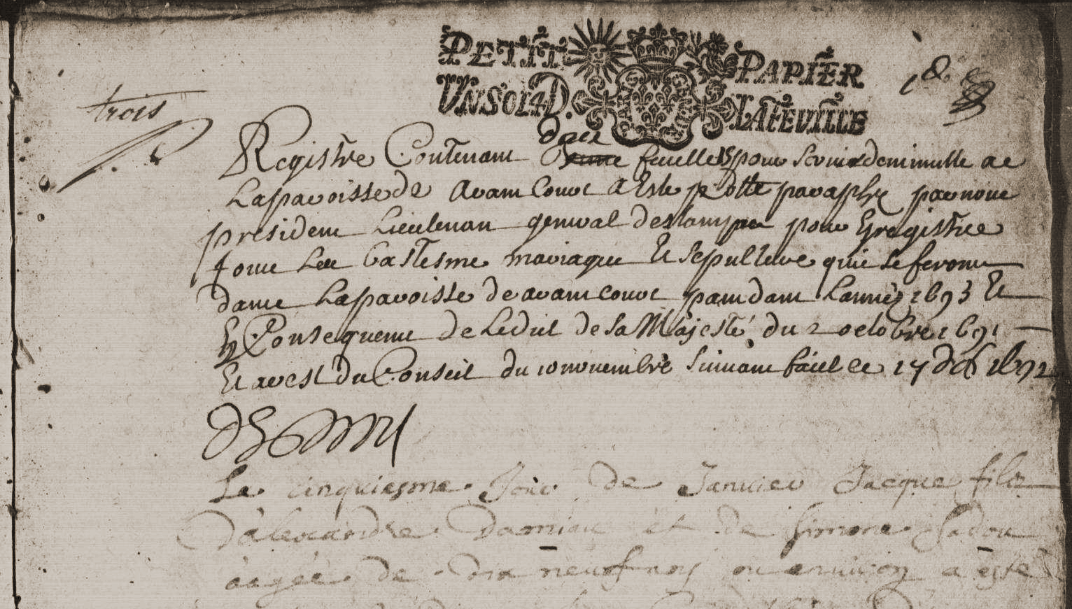 PETIT PAPIER
UN SOL 4 D. LA FEVILLE
trois
Registre Contenant douze feuilles pour servir de minutte a
La paroisse de avaincourt a Este cotte paraphe par nous
president Lieutenant general destampes pour Enregistrer
Tous Les bastesme mariages Et sepulture qui se feront
dans La paroisse de avaincourt pendant Lannée 1693 Et
En Consequence de Ledit de sa Majesté du 2 octobre 1691
Et arest du Conseil du 10 novembre suivant fait ce 17 1692
Le cinquiesme Jour de Janvier Jacque filz
d'alexandre Damien et de Simone
aagé de dix neuf ans ou environ a esté